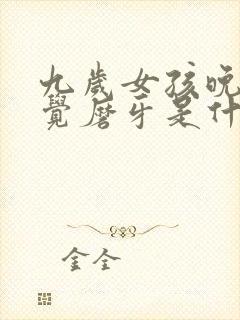 九岁女孩晚
觉磨牙是什
金全